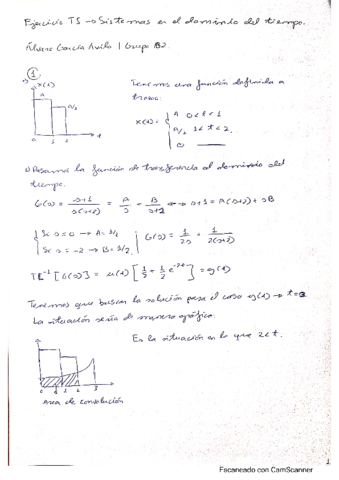 Ejercicio T5 → Sistemas en el dominio del tiempo.
Álvaro García Avila | Grupo B2.
①
x(t)
A
A/2
t
Tenemos una función definida a
trozos:
x(t) = { A 0<t<1
A/2 1<t<2
0
Pasamos la función de transferencia al dominio del
tiempo.
G(s) = s+1 / s(s+2) = A/s + B/s+2 ↔ s+1 = A(s+2) + sB
Si s=0 → A=1/2
Si s=-2 → B=1/2
G(s) = 1/2s + 1/2(s+2)
TL⁻¹ [G(s)] = u(t) [1/2 + 1/2 e^-2t] = g(t)
Tenemos que buscar la solución para el caso y(t) → t=3
La situación sería de manera gráfica.
Es la situación en la que 2<t.
Area de convolución
1
Escaneado con CamScanner